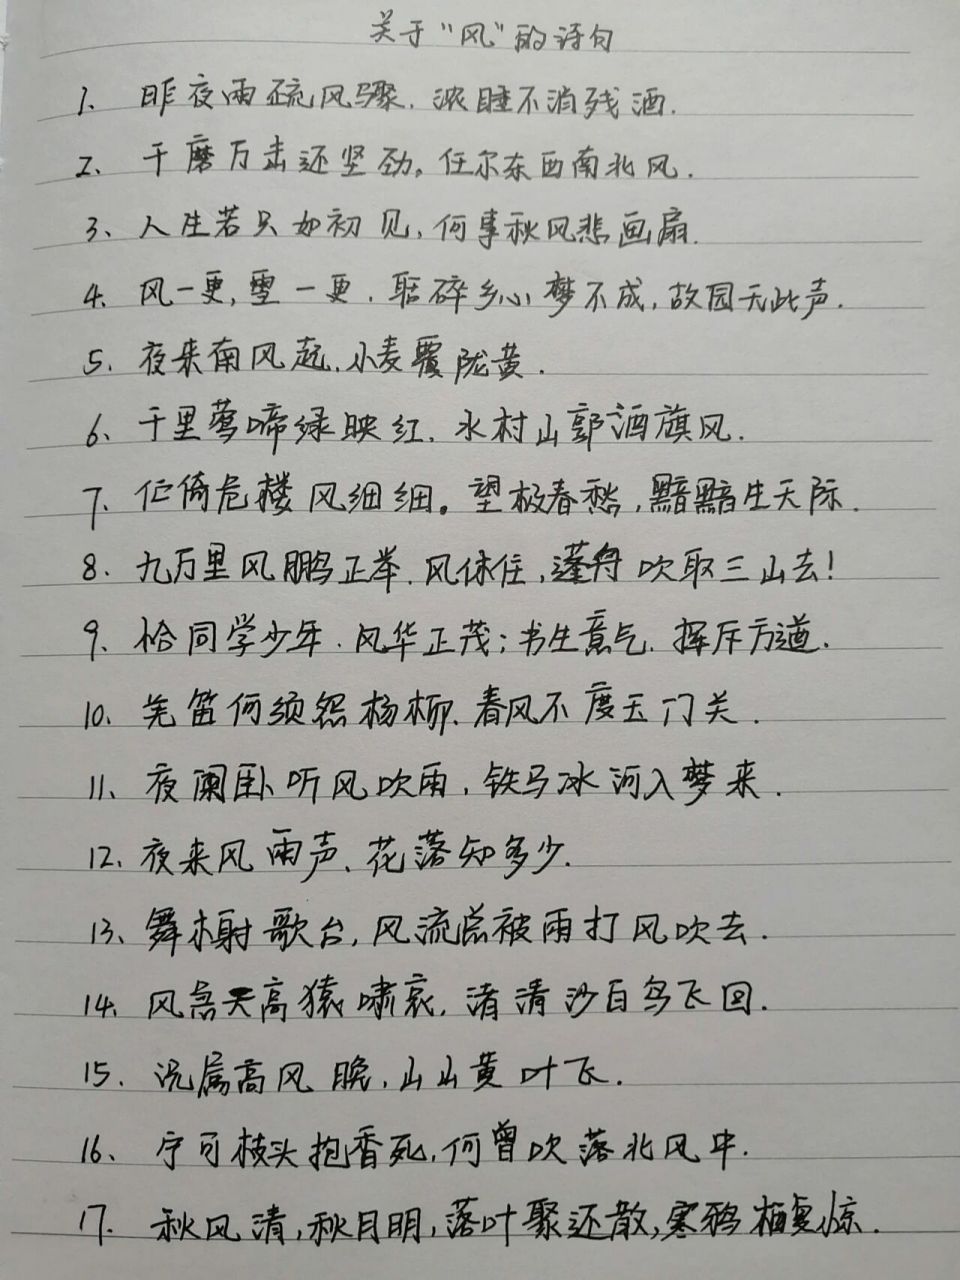 关于“风”的诗句
1、昨夜雨疏风骤，浓睡不消残酒.
2、千磨万击还坚劲。任尔东西南北风.
3、人生若只如初见，何事秋风悲画扇.
4、风一更，雪一更．聒碎乡心梦不成，故园无此声．
5、夜来南风起，小麦覆陇黄．
6、千里莺啼绿映红．水村山郭酒旗风．
7、伫倚危楼风细细。望极春愁，黯黯生天际．
8、九万里风鹏正举．风休住，蓬舟吹取三山去！
9、恰同学少年．风华正茂；书生意气．挥斥方遒．
10、羌笛何须怨杨柳．春风不度玉门关．
11、夜阑卧听风吹雨，铁马冰河入梦来．
12、夜来风雨声、花落知多少．
13、舞榭歌台，风流总被雨打风吹去．
14、风急天高猿啸哀，渚清沙白鸟飞回．
15、况属高风晚，山山黄叶飞．
16、宁可枝头抱香死，何曾吹落北风中．
17、秋风清，秋月明，落叶聚还散，寒鸦栖复惊．